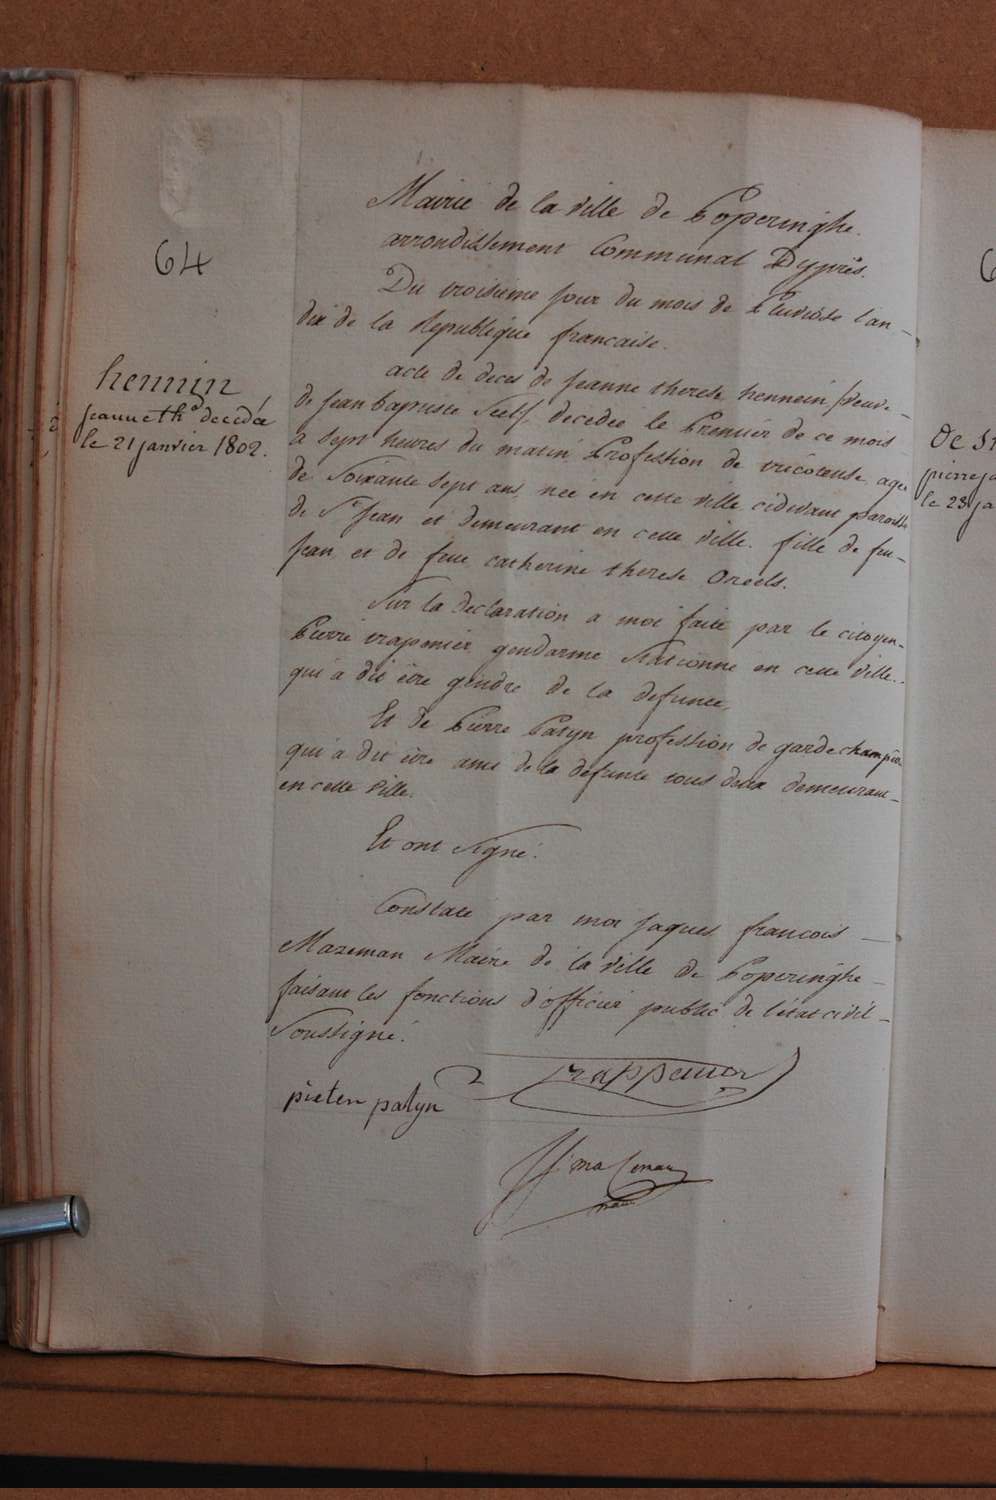 64
hennin
jeanne th.e decedée
le 21 janvier 1802.
Mairie de la ville de Poperinghe.
arrondissement Communal Dyprès.
Du troisieme jour du mois de Pluviose l'an -
dix de la Republique francaise.
acte de deces de jeanne therese hennein veuve -
de jean baptiste decedée le Premier de ce mois
a sept heures du matin, Profession de tricoteuse, agée
de Soixante Sept ans, née en cette ville cidevant paroisse
de St jean et demeurant en cette ville. fille de feu -
jean et de feue catherine therese
Sur la declaration a moi faite par le citoyen -
Pierre trapenier gendarme Stationné en cette ville.
qui a dit être gendre de la defunte,
Et de Pierre Patyn profession de garde champêtre
qui a dit être ami de la defunte tous deux demeurant -
en cette ville.
Et ont Signé.
Constaté par moi jaques francois -
Mazeman Maire de la ville de Poperinghe -
faisant les fonctions d'officier public de l'état civil -
Soussigné.
pieter patyn
de St
pierre ja
le 23 ja